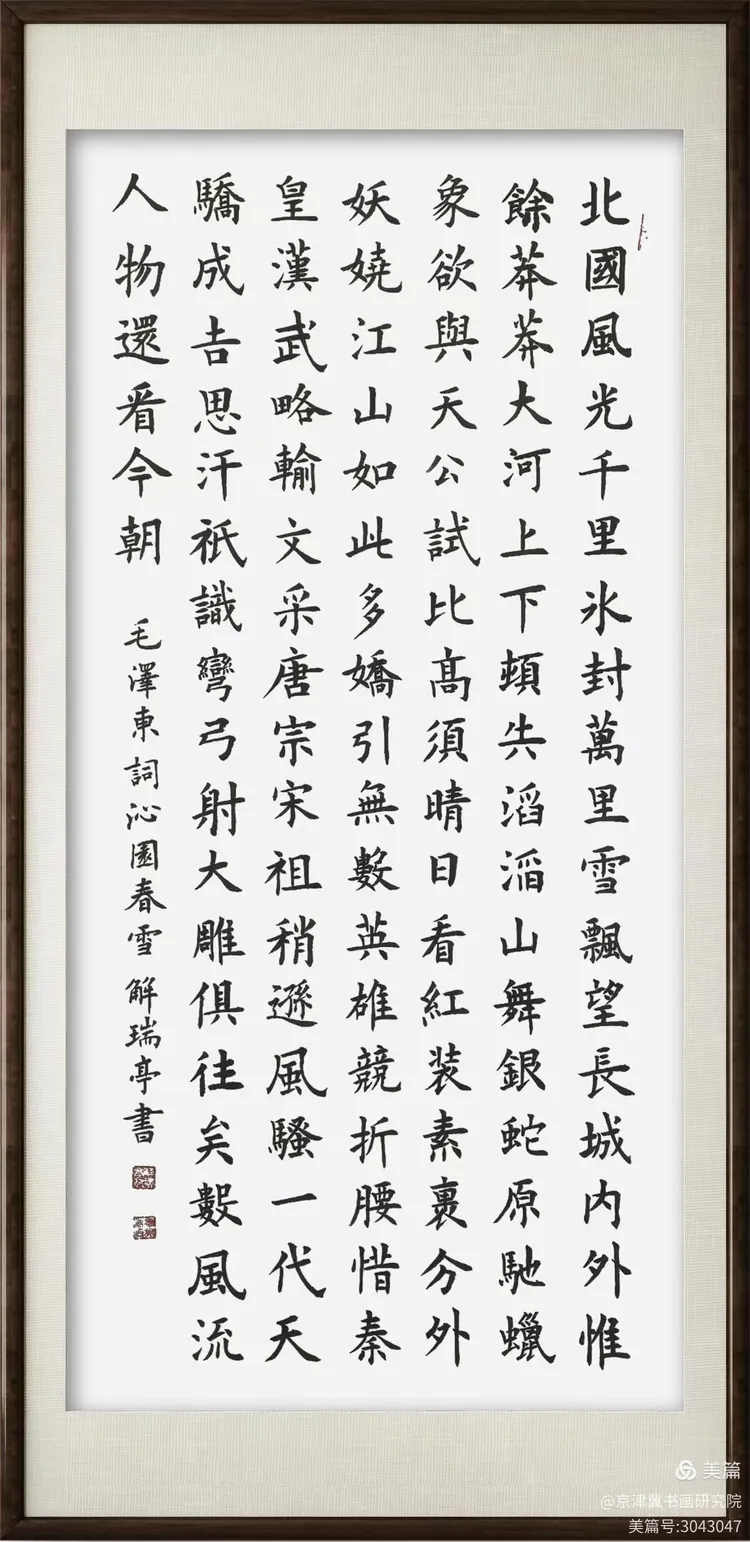 北國風光千里氷封萬里雪飄望長城内外惟
餘莽莽大河上下頓失滔滔山舞銀蛇原馳蠟
象欲與天公試比髙須晴日看紅装素裹分外
妖嬈江山如此多嬌引無數英雄競折腰惜秦
皇漢武略輸文采唐宗宋祖稍遜風騷一代天
驕成吉思汗祇識彎弓射大雕俱往矣數風流
人物還看今朝 毛澤東詞沁園春雪 解瑞亭書
美篇
@京津冀书画研究院
美篇号:3043047